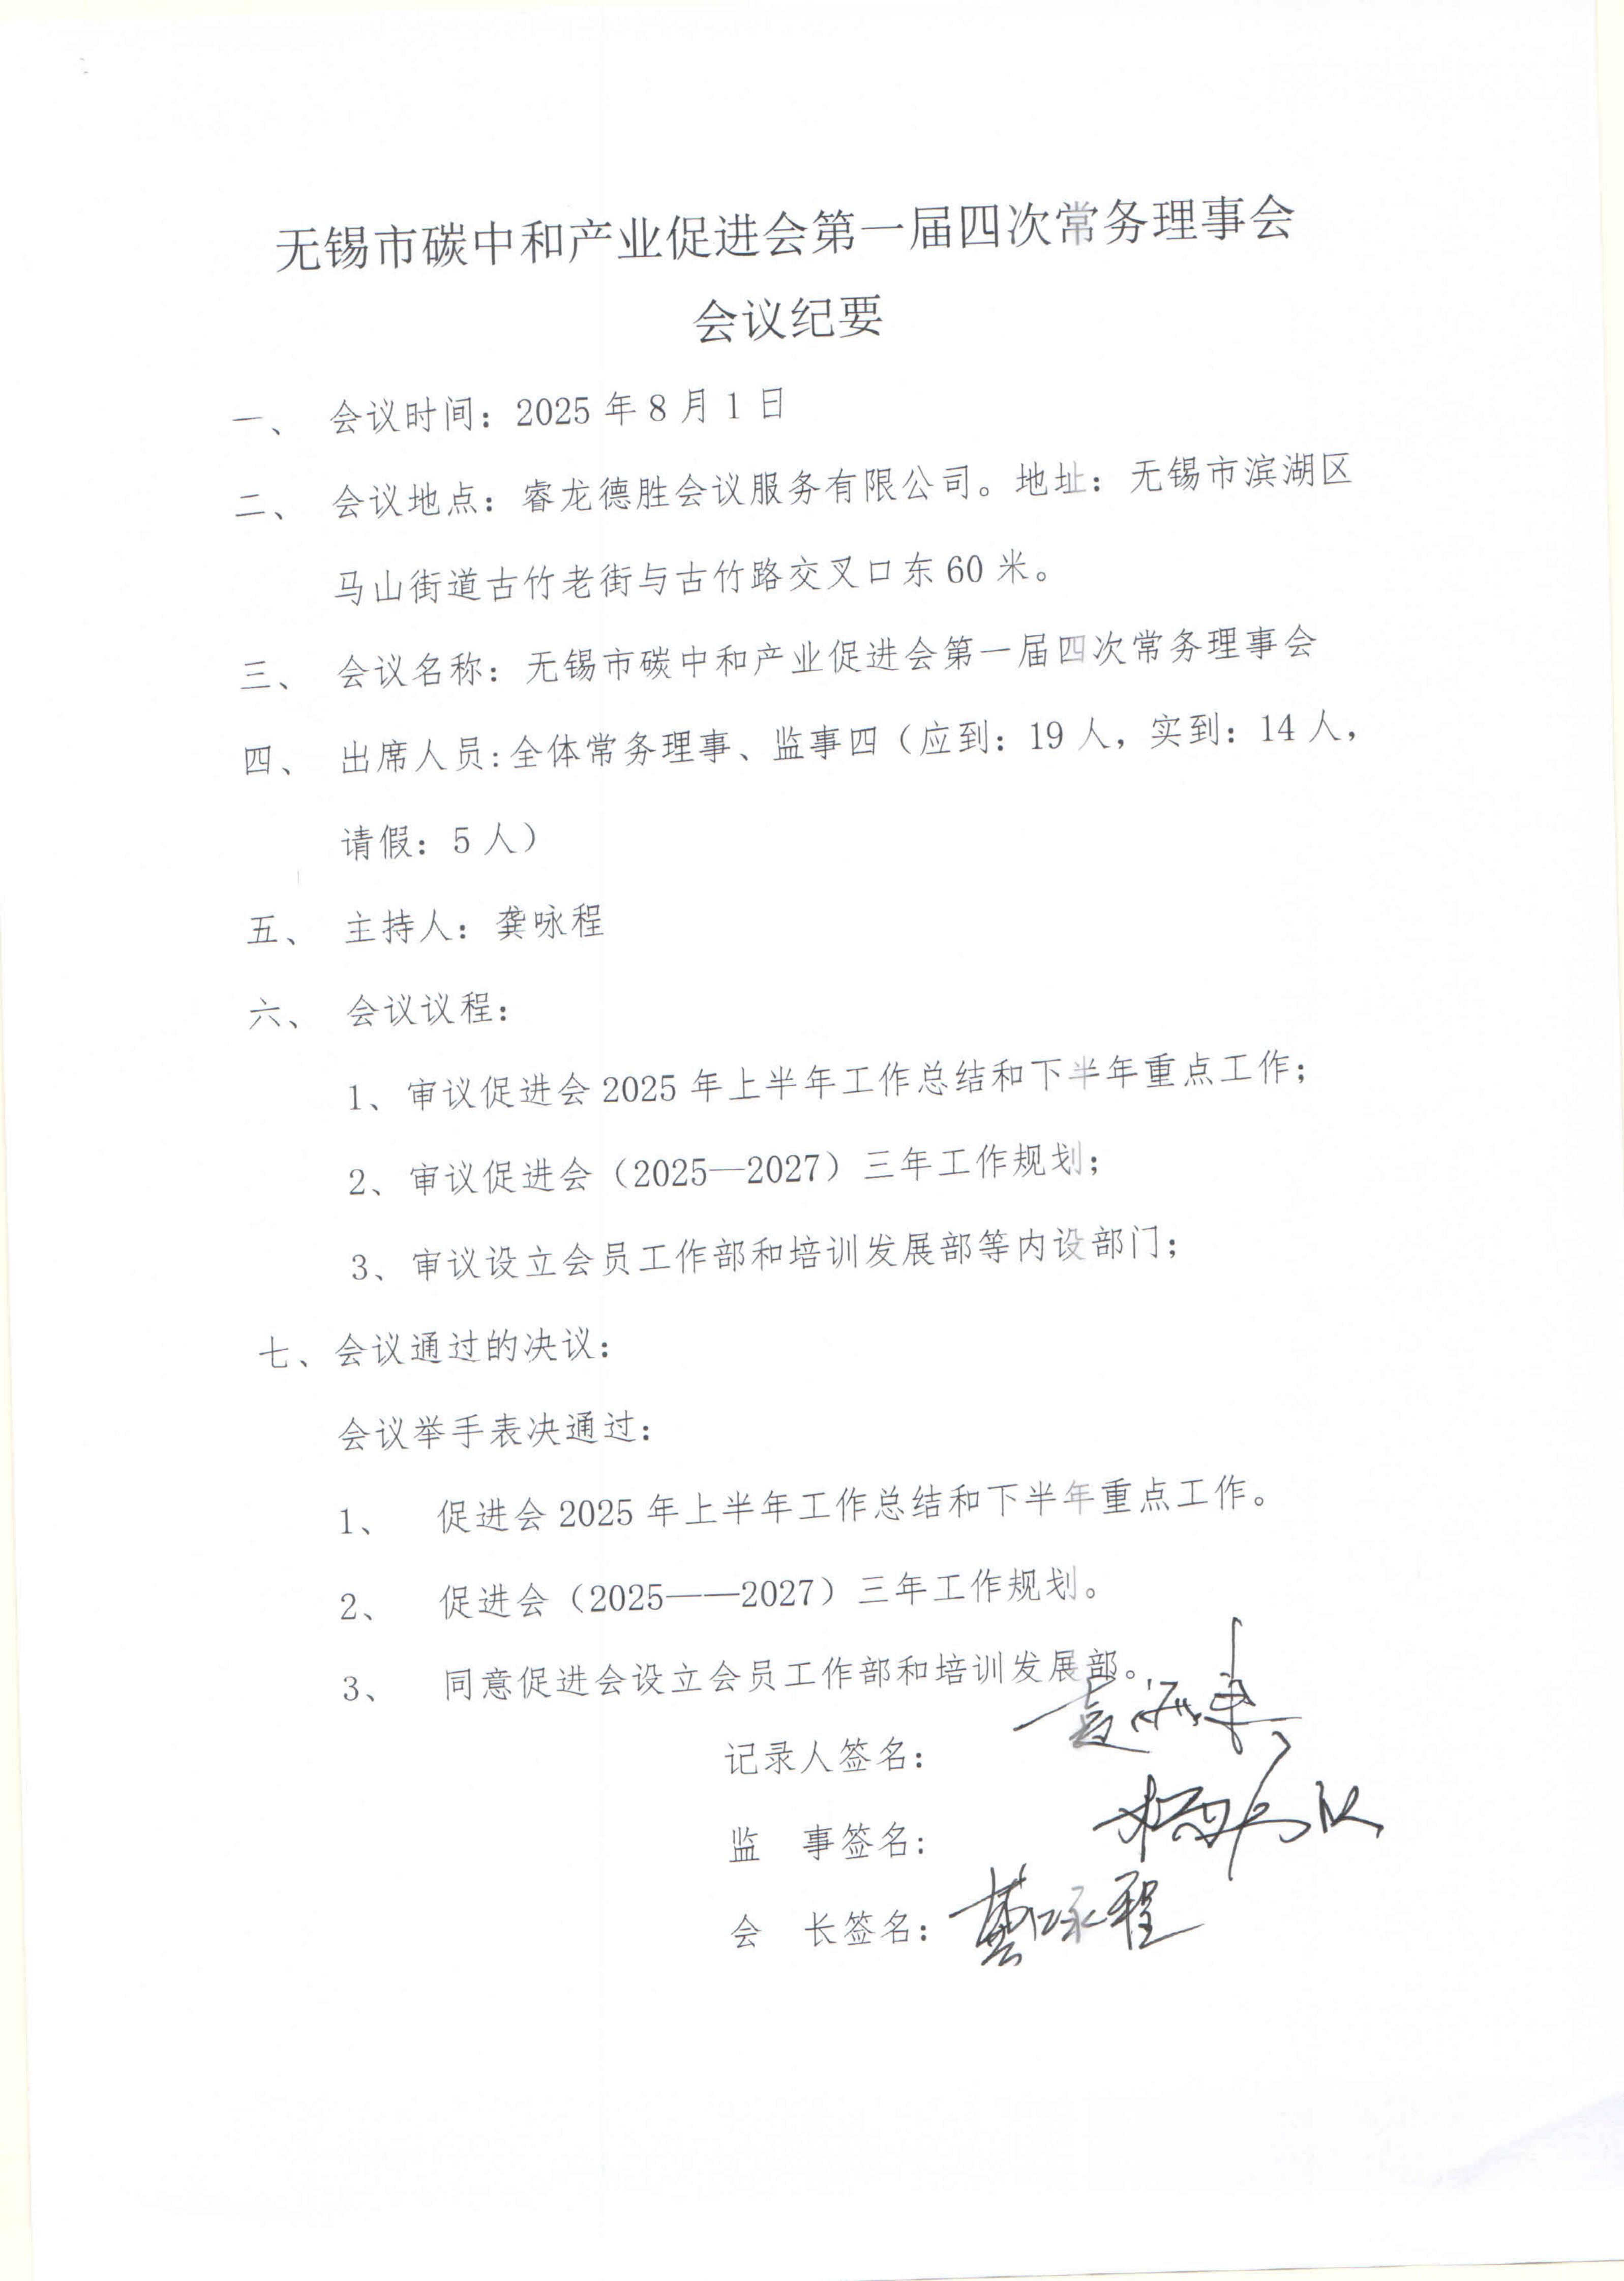 无锡市碳中和产业促进会第一届四次常务理事会
会议纪要
一、 会议时间：2025年8月1日
二、 会议地点：睿龙德胜会议服务有限公司。地址：无锡市滨湖区
马山街道古竹老街与古竹路交叉口东60米。
三、 会议名称：无锡市碳中和产业促进会第一届四次常务理事会
四、 出席人员:全体常务理事、监事四（应到：19人，实到：14人，
请假：5人）
五、 主持人：龚咏程
六、 会议议程：
1、审议促进会2025年上半年工作总结和下半年重点工作；
2、审议促进会（2025—2027）三年工作规划；
3、审议设立会员工作部和培训发展部等内设部门；
七、会议通过的决议：
会议举手表决通过：
1、 促进会2025年上半年工作总结和下半年重点工作。
2、 促进会（2025——2027）三年工作规划。
3、 同意促进会设立会员工作部和培训发展部。
记录人签名：
监 事签名：
会 长签名：龚咏程